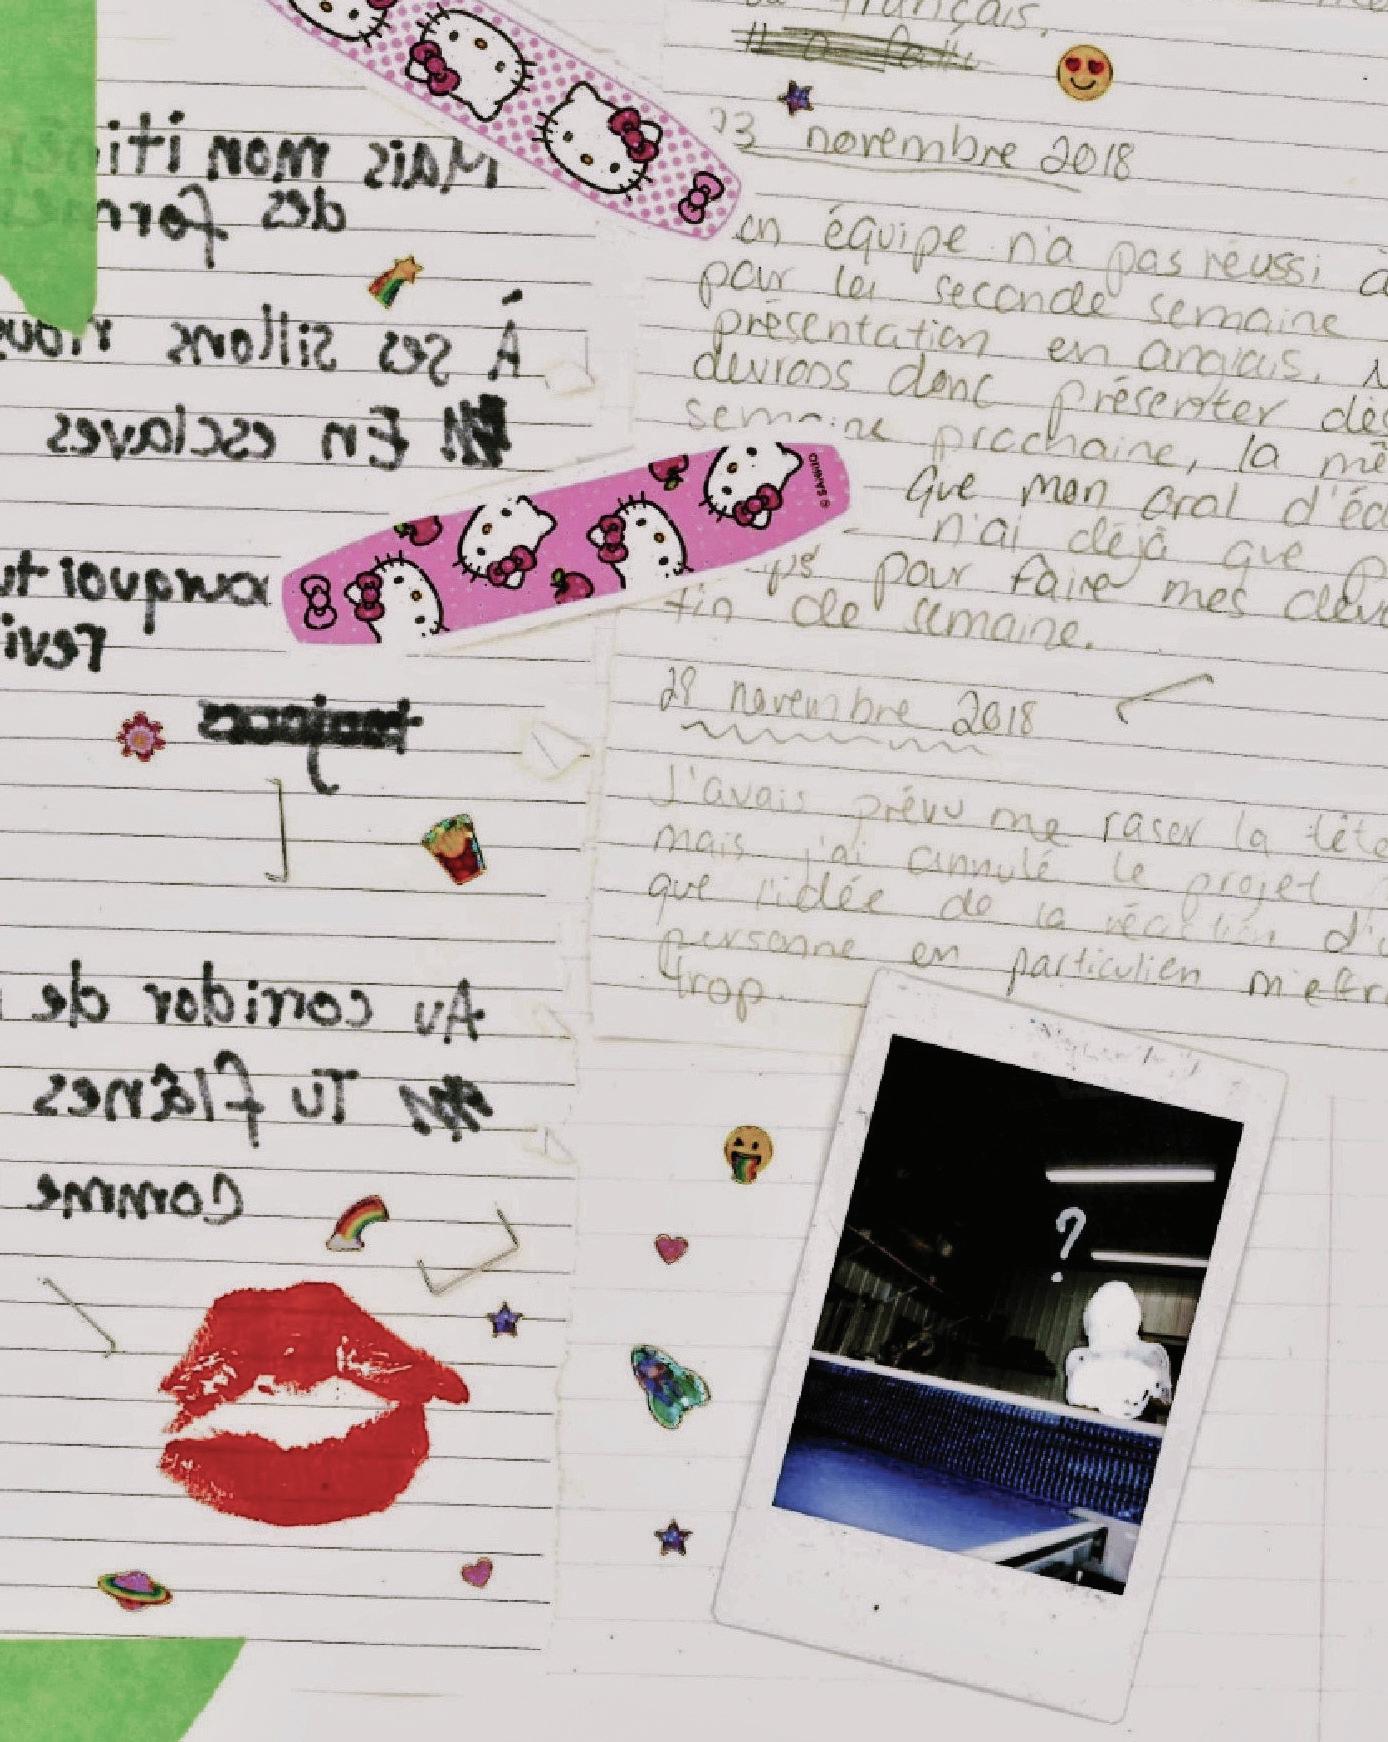 Mais mon
des
À ses sillons
En esclaves
revi
Au corridor de
Tu flânes
Comme
français.
novembre 2018
en équipe n'a pas réussi à
pour la seconde semaine
présentation en anglais.
devrons donc présenter dès
semaine prochaine, la
Que mon oral
n'ai déjà que
pour faire mes
fin de semaine.
28 novembre 2018
J'avais prévu me raser la tête
mais j'ai annulé le projet
que l'idée de la réaction
personne en particulier
trop
© SANRIO
?